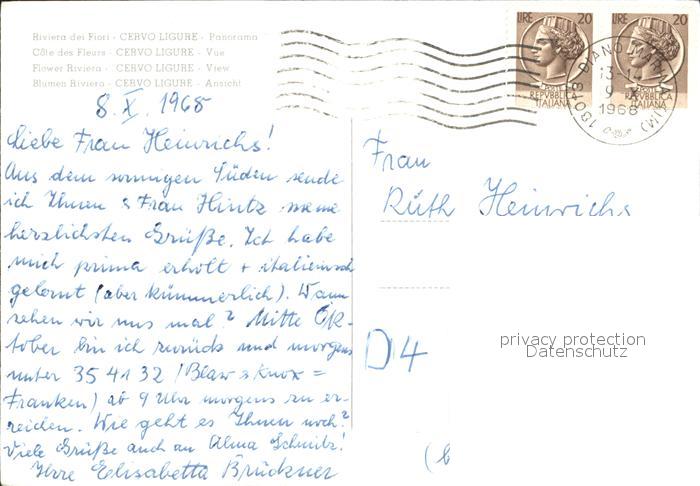 Riviera dei Fiori - CERVO LIGURE - Panorama
Côte des Fleurs - CERVO LIGURE - Vue
Flower Riviera - CERVO LIGURE - View
Blumen Riviera - CERVO LIGURE - Ansicht
8. X. 1968
Liebe Frau Heinrichs!
Aus dem sonnigen Süden sende
ich Ihnen & Frau Hintz meine
herzlichsten Grüße. Ich habe
mich prima erholt + italienisch
gelernt (aber kümmerlich). Wann
sehen wir uns mal? Mitte Ok-
tober bin ich zurück und morgens
unter 35 41 32 (Blaw & Knox =
Franken) ab 9 Uhr morgens zu er-
reichen. Wie geht es Ihnen noch?
Viele Grüße auch an Alma Schmitz!
Ihre Elisabetta Brückner
LIRE 20
REPVBBLICA
ITALIANA
LIRE 20
REPVBBLICA
ITALIANA
18013 DIANO MARINA (IM)
13-14
9
1968
Frau
Ruth Heinrichs
D4
privacy protection
Datenschutz